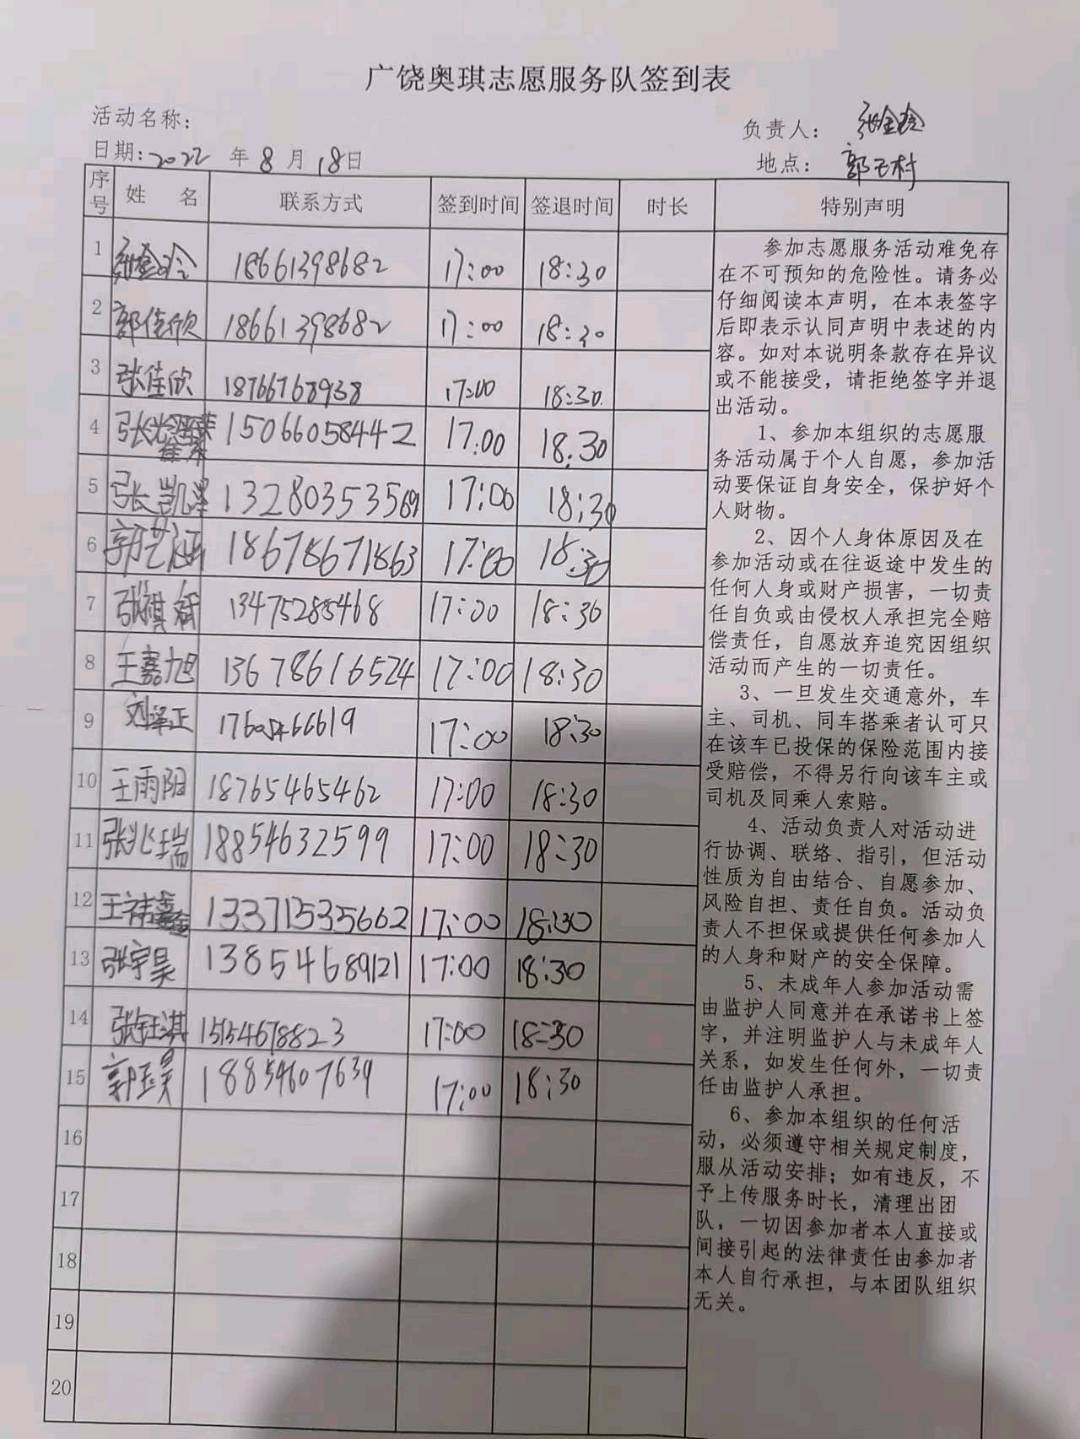 广饶奥琪志愿服务队签到表
活动名称：
负责人：
日期：2022年8月18日
地点：郭王村
序号 姓 名 联系方式 签到时间 签退时间 时长 特别声明
1 18661398682 17:00 18:30
2 郭佳欣 18661398682 17:00 18:30
3 张佳欣 18766768938 17:00 18:30
4 15066058442 17.00 18.30
5 张凯泽 17:00 18:30
6 郭艺涵 18678671863 17:00 18:30
7 张祺 13475285468 17:00 18:30
8 王嘉旭 13678616524 17:00 18:30
9 刘泽正 17:00 18:30
10 王雨阳 18765465462 17:00 18:30
11 张兆瑞 18854632599 17:00 18:30
12 王 17:00 18:30
13 张宇昊 13854689121 17:00 18:30
14 张钰淇 15154678823 17:00 18:30
15 郭玉昊 18854607639 17:00 18:30
16
17
18
19
20
参加志愿服务活动难免存
在不可预知的危险性。请务必
仔细阅读本声明，在本表签字
后即表示认同声明中表述的内
容。如对本说明条款存在异议
或不能接受，请拒绝签字并退
出活动。
1、参加本组织的志愿服
务活动属于个人自愿，参加活
动要保证自身安全，保护好个
人财物。
2、因个人身体原因及在
参加活动或在往返途中发生的
任何人身或财产损害，一切责
任自负或由侵权人承担完全赔
偿责任，自愿放弃追究因组织
活动而产生的一切责任。
3、一旦发生交通意外，车
主、司机、同车搭乘者认可只
在该车已投保的保险范围内接
受赔偿，不得另行向该车主或
司机及同乘人索赔。
4、活动负责人对活动进
行协调、联络、指引，但活动
性质为自由结合、自愿参加、
风险自担、责任自负。活动负
责人不担保或提供任何参加人
的人身和财产的安全保障。
5、未成年人参加活动需
由监护人同意并在承诺书上签
字，并注明监护人与未成年人
关系，如发生任何外，一切责
任由监护人承担。
6、参加本组织的任何活
动，必须遵守相关规定制度，
服从活动安排；如有违反，不
予上传服务时长，清理出团
队，一切因参加者本人直接或
间接引起的法律责任由参加者
本人自行承担，与本团队组织
无关。